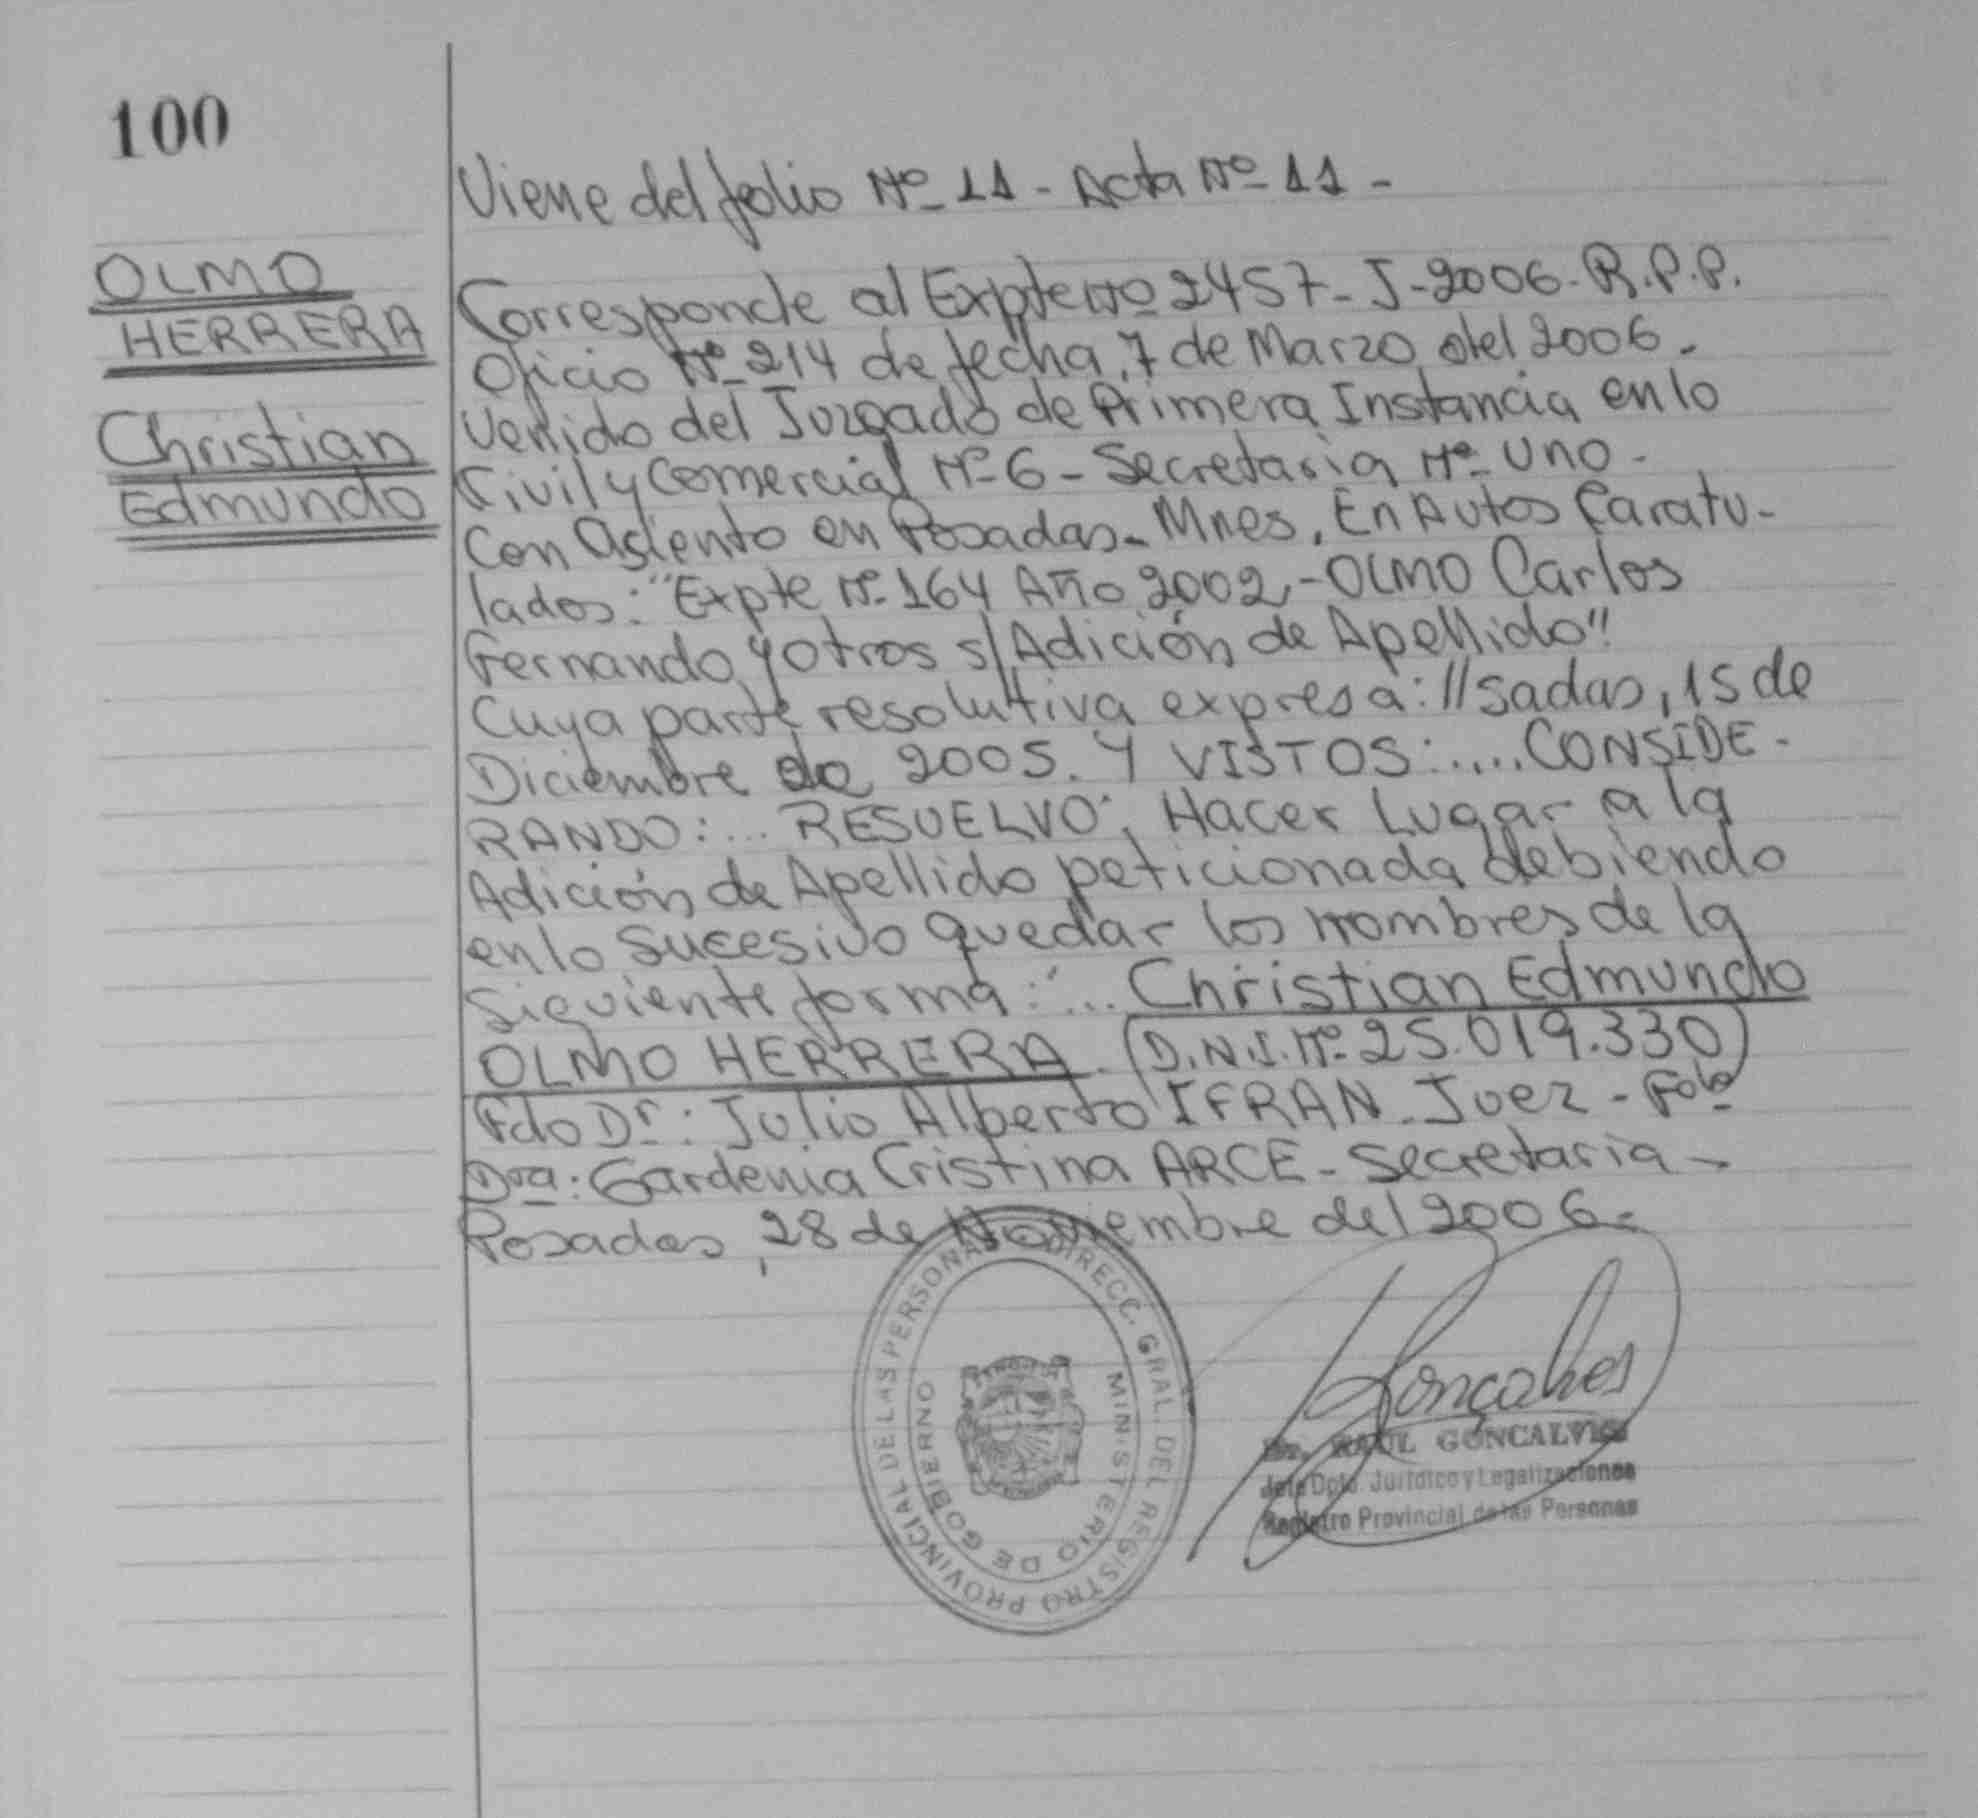 100
OLMO
HERRERA
Christian
Edmundo
Viene del folio Nº 11 - Acta Nº 11 -
Corresponde al Expte Nº 2457 - J - 2006 - R.P.P.
Oficio Nº 214 de fecha, 7 de Marzo del 2006 -
Venido del Juzgado de Primera Instancia en lo
Civil y Comercial Nº 6 - Secretaria Nº Uno -
Con Asiento en Posadas - Mnes, En Autos Caratu-
lados: "Expte Nº 164 Año 2002 - OLMO Carlos
Fernando y Otros s/Adición de Apellido"
Cuya parte resolutiva expresa: //sadas, 15 de
Diciembre de 2005. Y VISTOS: .... CONSIDE-
RANDO: ... RESUELVO: Hacer Lugar a la
Adición de Apellido peticionada debiendo
en lo Sucesivo quedar los nombres de la
Siguiente forma: ... Christian Edmundo
OLMO HERRERA. (D.N.I. Nº 25.019.330)
Fdo Dr: Julio Alberto IFRAN - Juez - Fdo
Dra: Gardenia Cristina ARCE - Secretaria -
Posadas, 28 de Noviembre del 2006 -
DIRECC. GRAL. DEL REGISTRO PROVINCIAL DE LAS PERSONAS
MINISTERIO DE GOBIERNO
Goncalves
Dr. RAUL GONCALVES
Jefe Dpto. Jurídico y Legalizaciones
Registro Provincial de las Personas